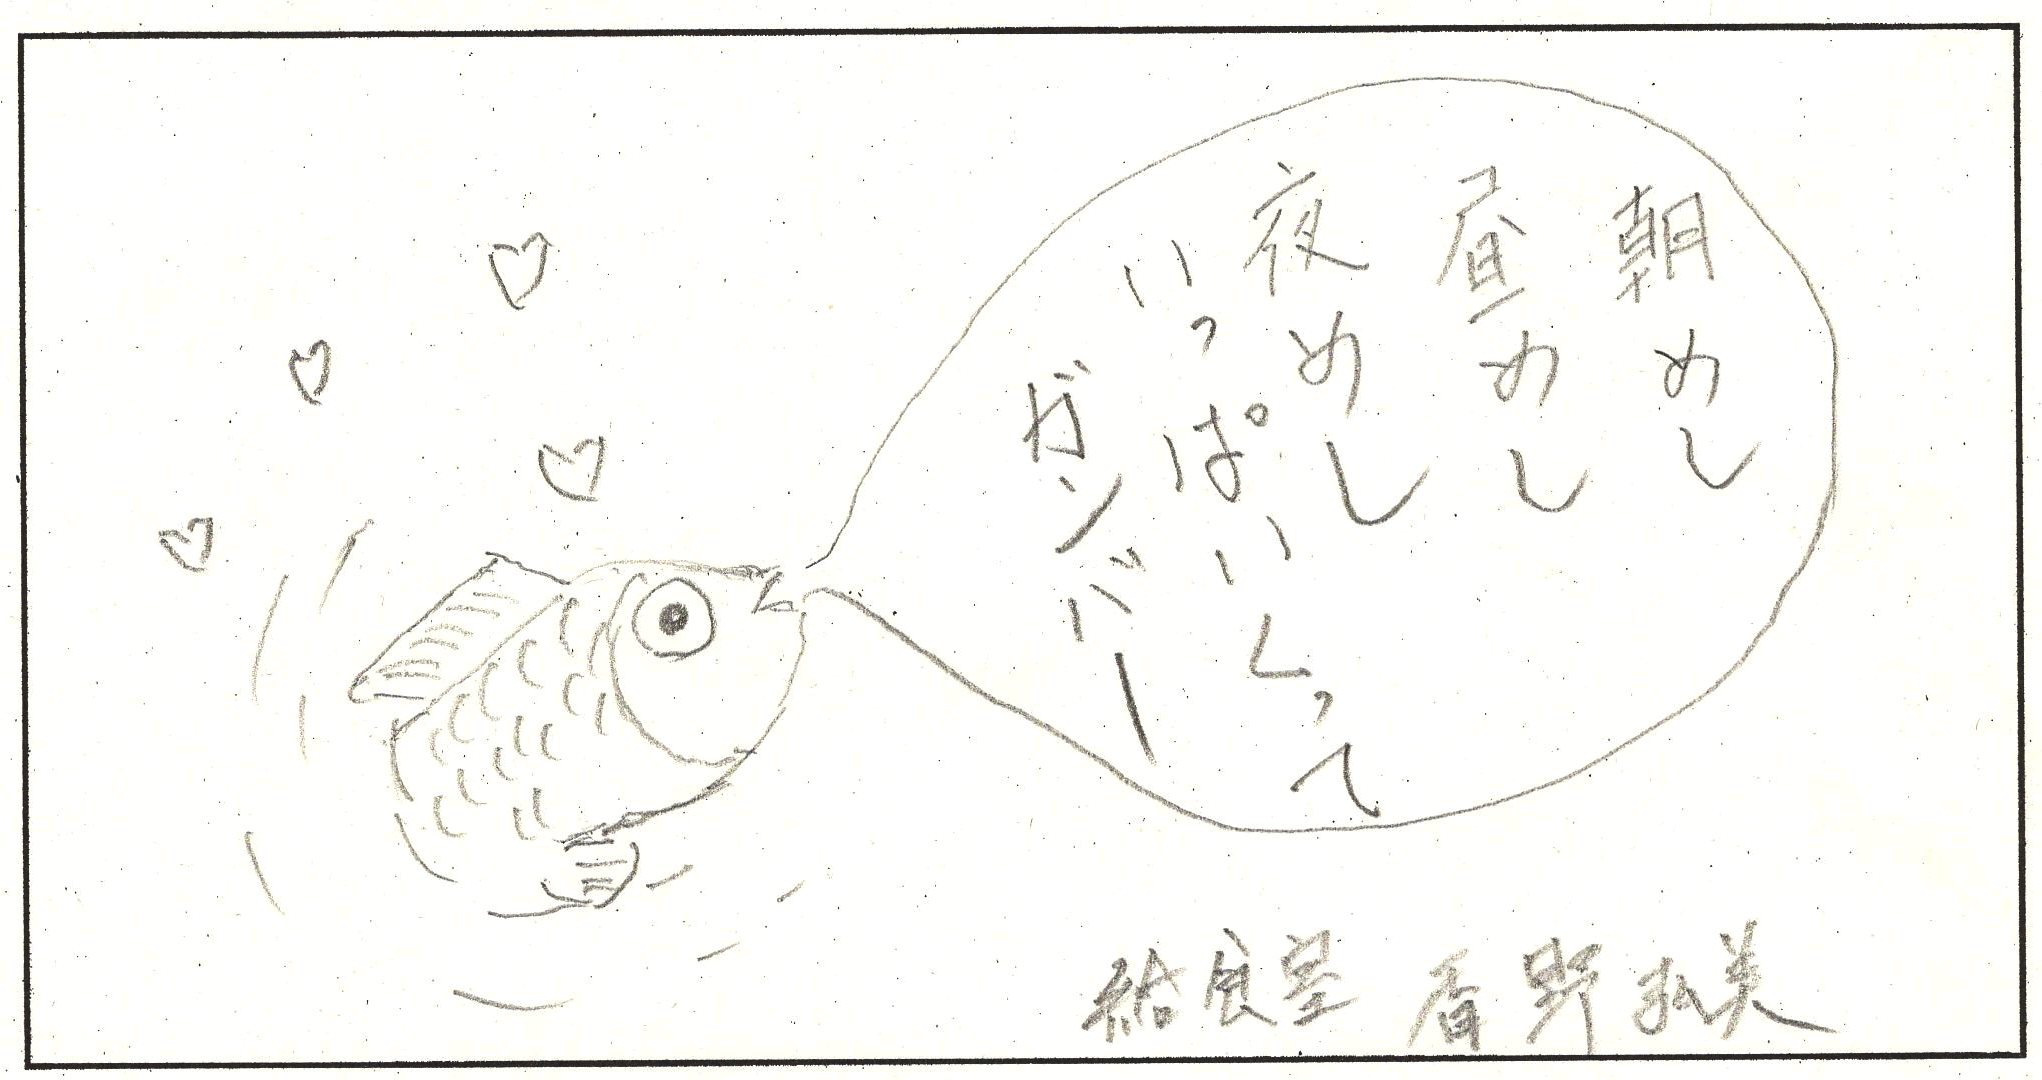 朝めし
昼めし
夜めし
いっぱいくって
ガンバー
給食室 香野弘美